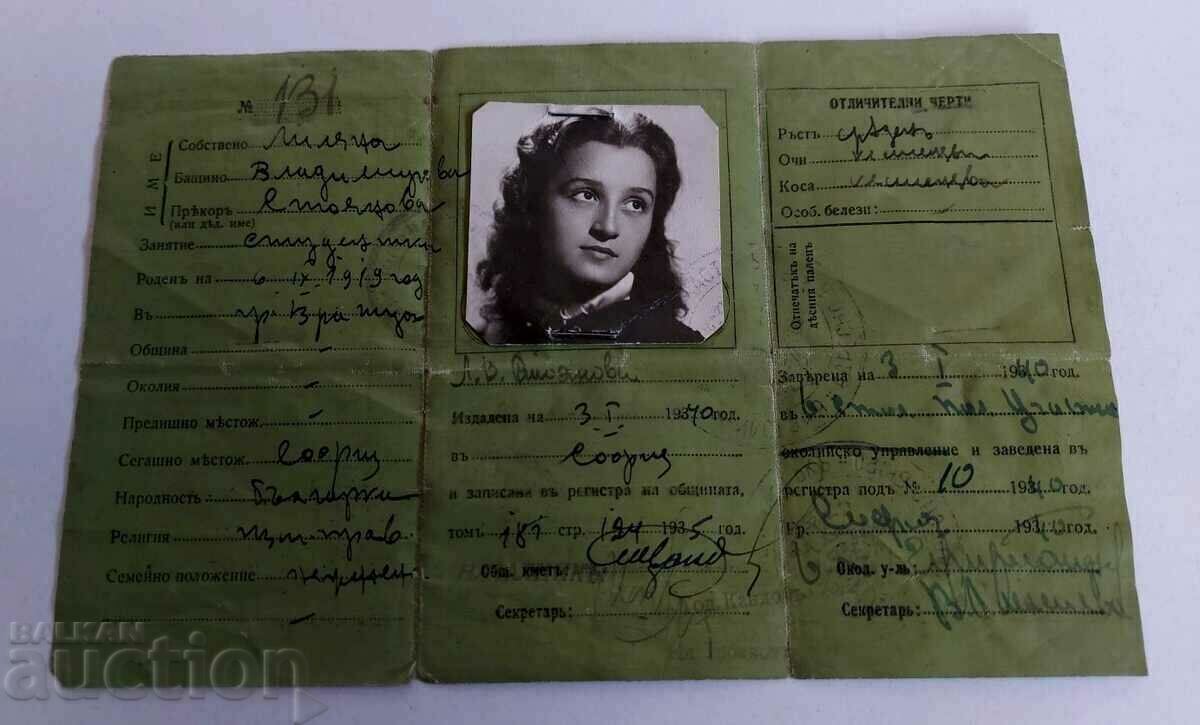 № 131
ИМЕ
Собствено Лиляна
Бащино Владимирова
Прѣкоръ Стоянова
(или дѣд. име)
Занятие студентка
Роденъ на 6 IX 1919 год
Въ гр. Враца
Община —
Околия —
Прелишно мѣстож. —
Сегашно мѣстож. София
Народность българка
Религия изт. прав
Семейно положение
Л. В. Стоянова
Издадена на 3 I 1940 год.
въ София
и записана въ регистра на общината,
томъ 181 стр. 124 1935 год.
Общ. кметъ:
Секретарь:
ОТЛИЧИТЕЛНИ ЧЕРТИ
Ръстъ срѣденъ
Очи кестеневи
Коса кестенява
Особ. белези: —
Отпечатъкъ на
дѣсния палецъ
Завѣрена на 3 I 1940 год.
въ
околийско управление и заведена въ
регистра подъ № 10 1940 год.
Гр. София 1940 год.
Окол. у-ль:
Секретарь:
BALKAN
auction